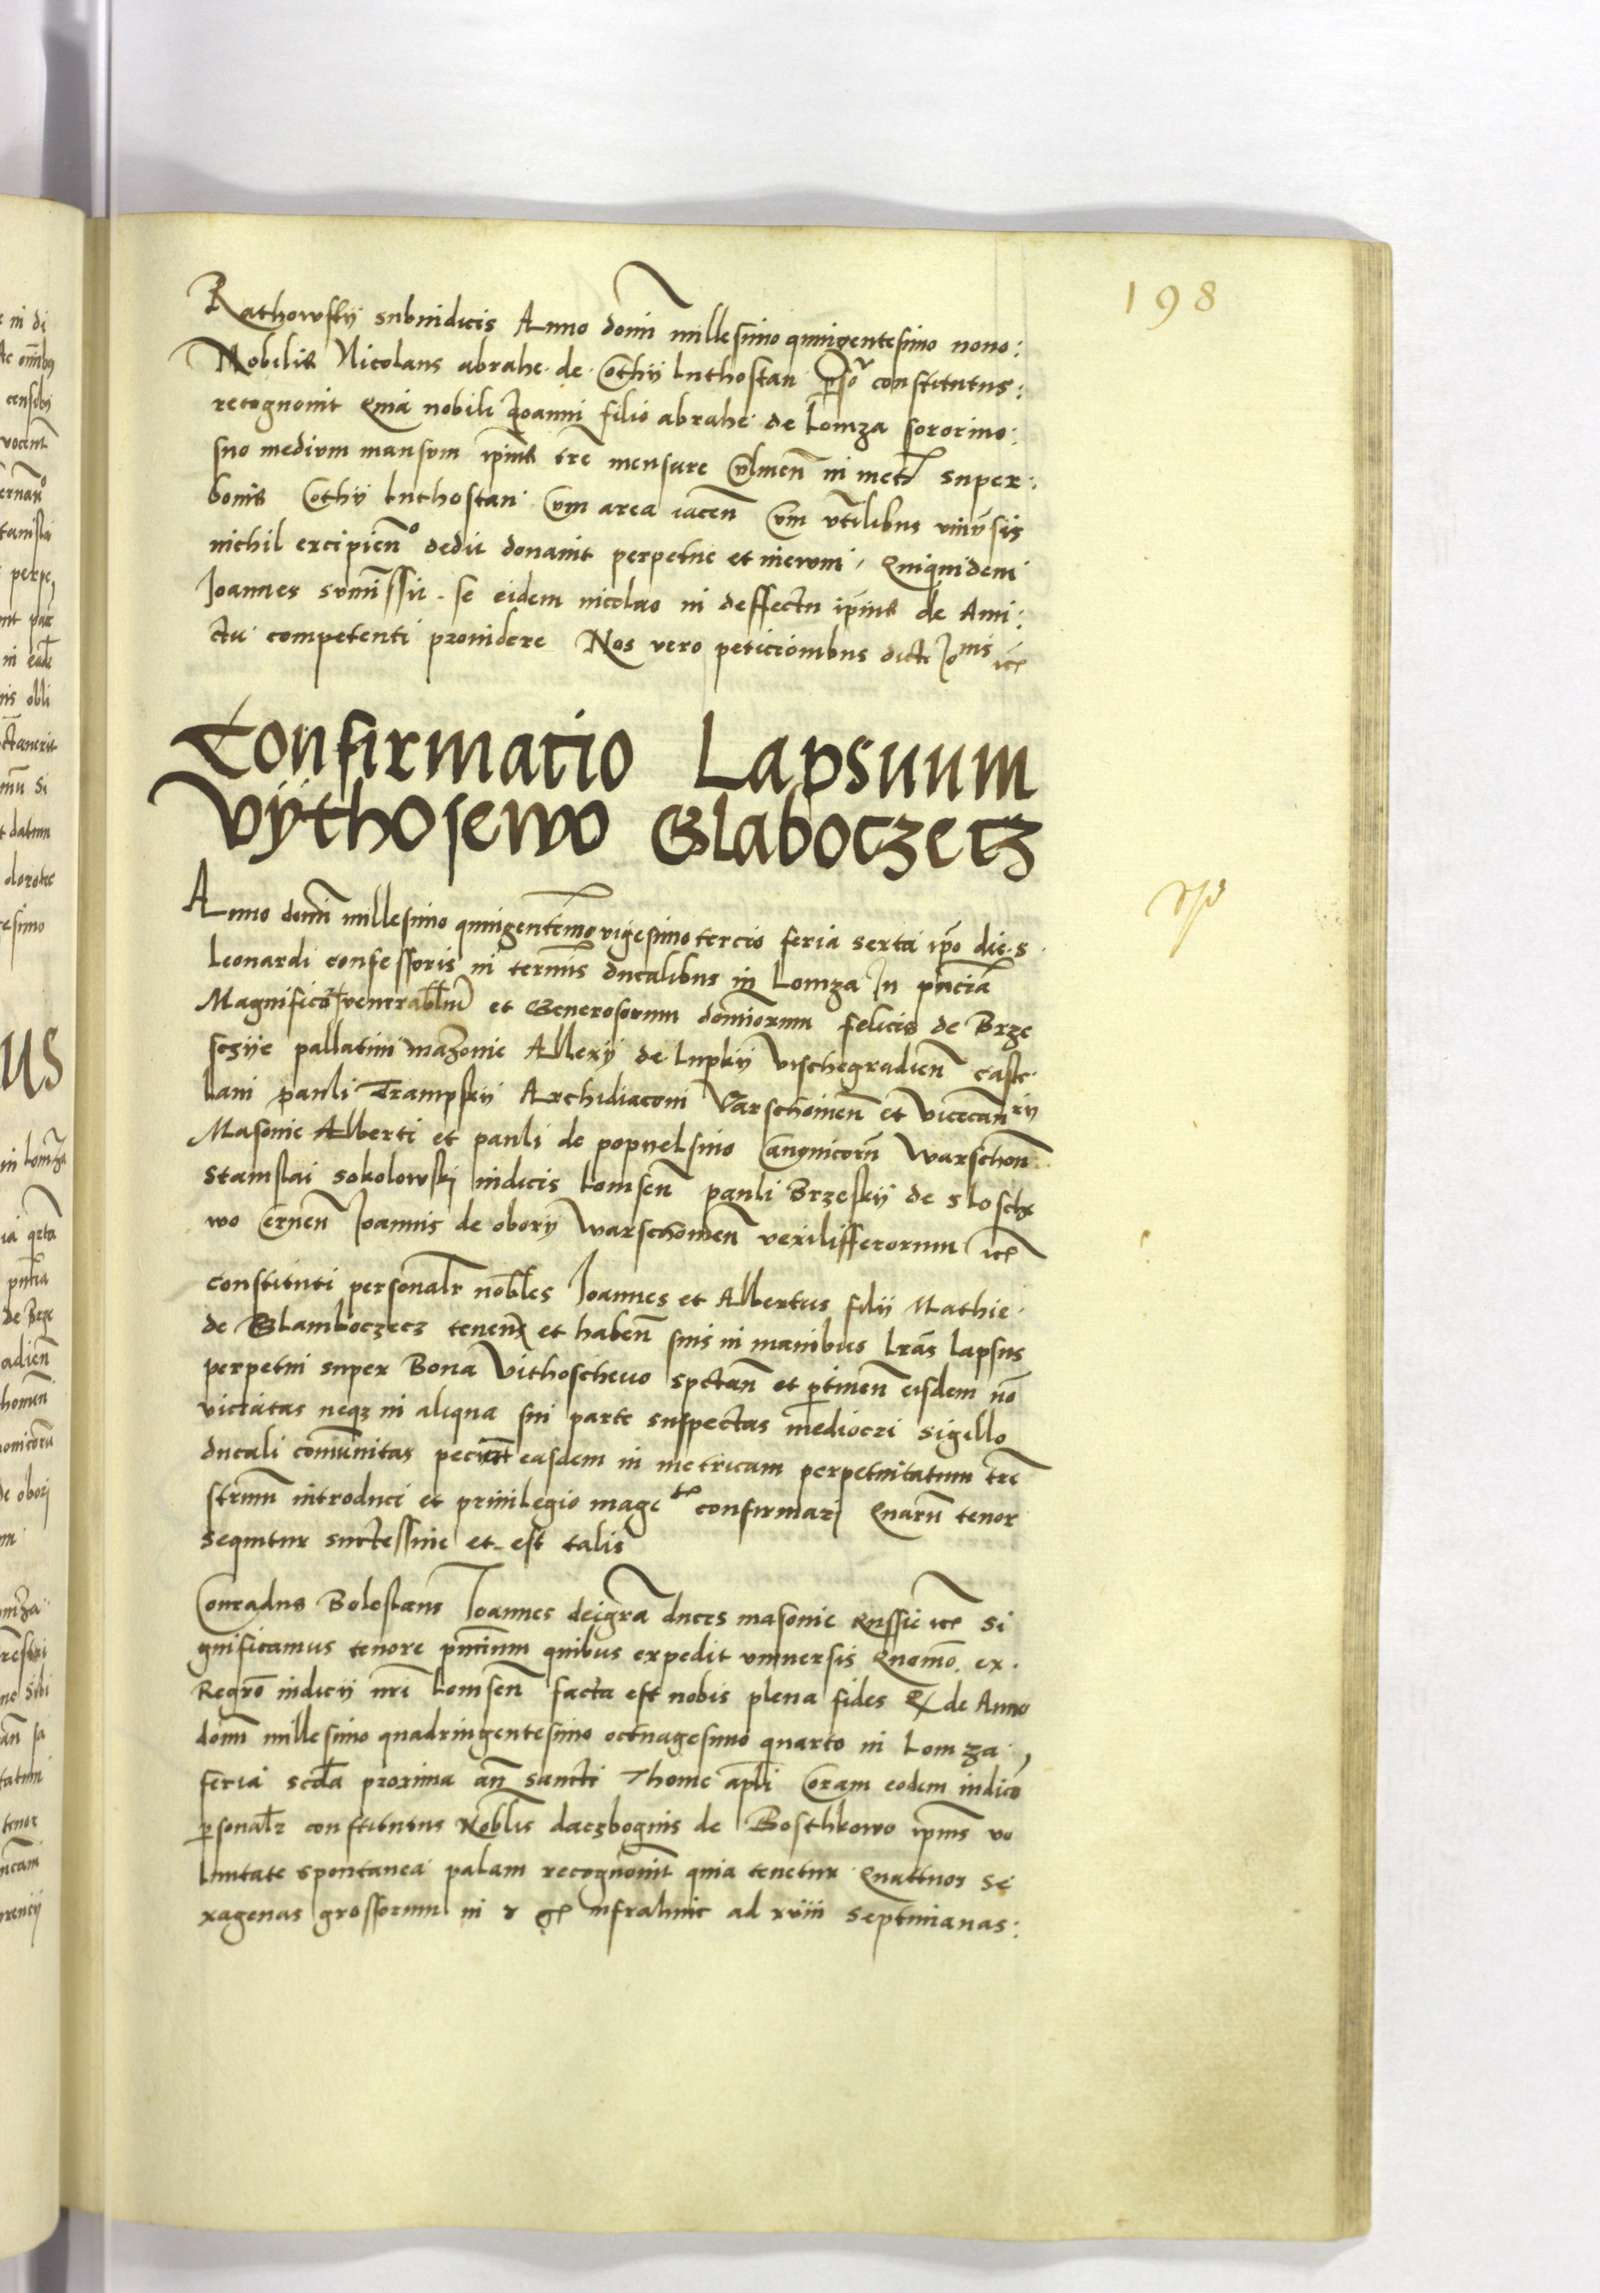 198
Rathowsky subiudicis Anno domī millesimo quingentesimo nono:
Nobilis Nicolaus abrahe de Cothy luthostan constitutus:
recognouit Quia nobili Joanni filio abrahe de Lomza sororino:
suo medium mansum ipius tre mensure Culmen in super:
bonis Cothy luthostan Cum area iacen Cum vtilibus vniūsis
nichil excipien dedit donauit perpetue et in ewm Quiquidem
Joannes summissit se eidem nicolao in deffectu ipius de Ami:
ctu competenti prouidere Nos vero peticionibus dicti Jonis
Confirmatio Lapsuum
Vythosewo Glaboczecz
Anno domī millesimo quingentesimo vigesimotercio feria sexta ipo die s
Leonardi confessoris in terminis ducalibus in Lomza In pncia
Magnifico venerabilm et Generosorum domiorum felicis de Brze
sczye pallatini mazouie Allexy de lupky Vischegradien caste
lani pauli Trampsky Archidiaconi Varschouien et vicecanry
Masouie Alberti et pauli de popyelsino Canonicoru warschon
Stanislai sokolowski iudicis Lomsen pauli Brzesky de slosche
wo Cernen Joannis de obory warschouien vexilifferorum
constituti personalr nobles Joannes et Albertus filii Mathie
de Glamboczecz tenen et haben suis in manibus lras lapsus
perpetui super Bona Vithoscheuo spctan et ptinen eisdem no
viciatas neqz in aliqua sui parte suspectas mediocri sigillo
ducali comunitas easdem in metricam perpetuitatum tre
strium introduci et priuilegio confirmari Quaru tenor
sequitur successiue et est talis
Conradus Boleslaus Joannes deigra duces masouie Russie Si
gnificamus tenore pncium quibus expedit vniuersis Quomo ex
Regro iudicij nri Lomsen facta est nobis plena fides Q de Anno
domī millesimo quadringentesimo octuagesimo quarto in Lomza
feria scda proxima an sancti Thome apli Coram eodem iudico
psonalr constitutus Noblis daczbogius de Bosthkowo ipius vo
luntate spontanea palam recognouit quia tenetur Quattuor se
xagenas grossorum in infrahinc ad xviii septimanas: